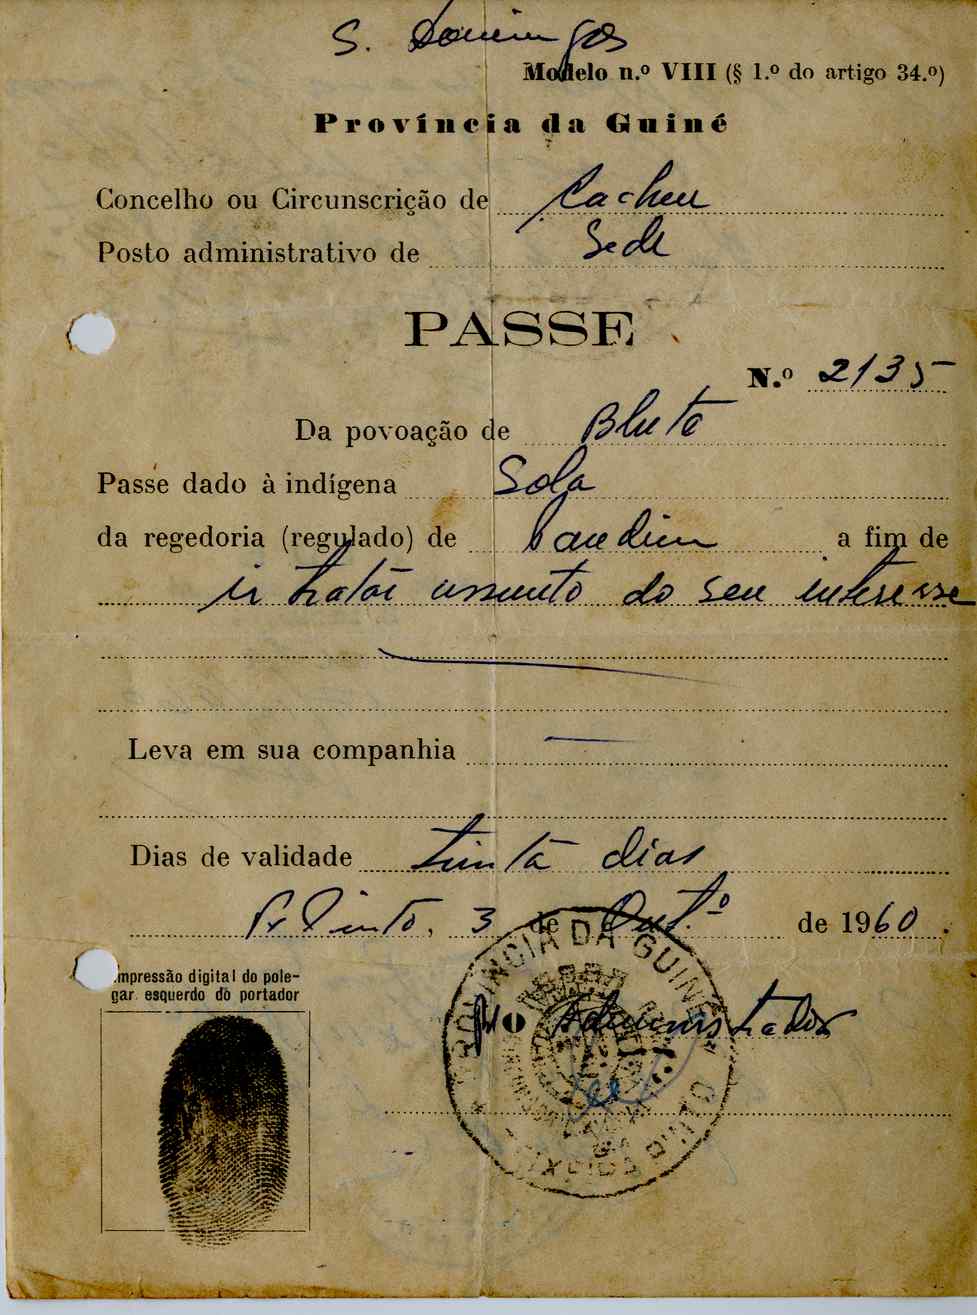 S. Domingos
Modelo n.º VIII (§ 1.º do artigo 34.º)
Província da Guiné
Concelho ou Circunscrição de Cacheu
Posto administrativo de Sede
PASSE
N.º 2135
Da povoação de
Passe dado à indígena Sola
da regedoria (regulado) de a fim de
ir tratar assunto do seu interesse
Leva em sua companhia
Dias de validade trinta dias
3 de Out.º de 1960.
Impressão digital do pole-
gar esquerdo do portador
PROVÍNCIA DA GUINÉ
O Administrador